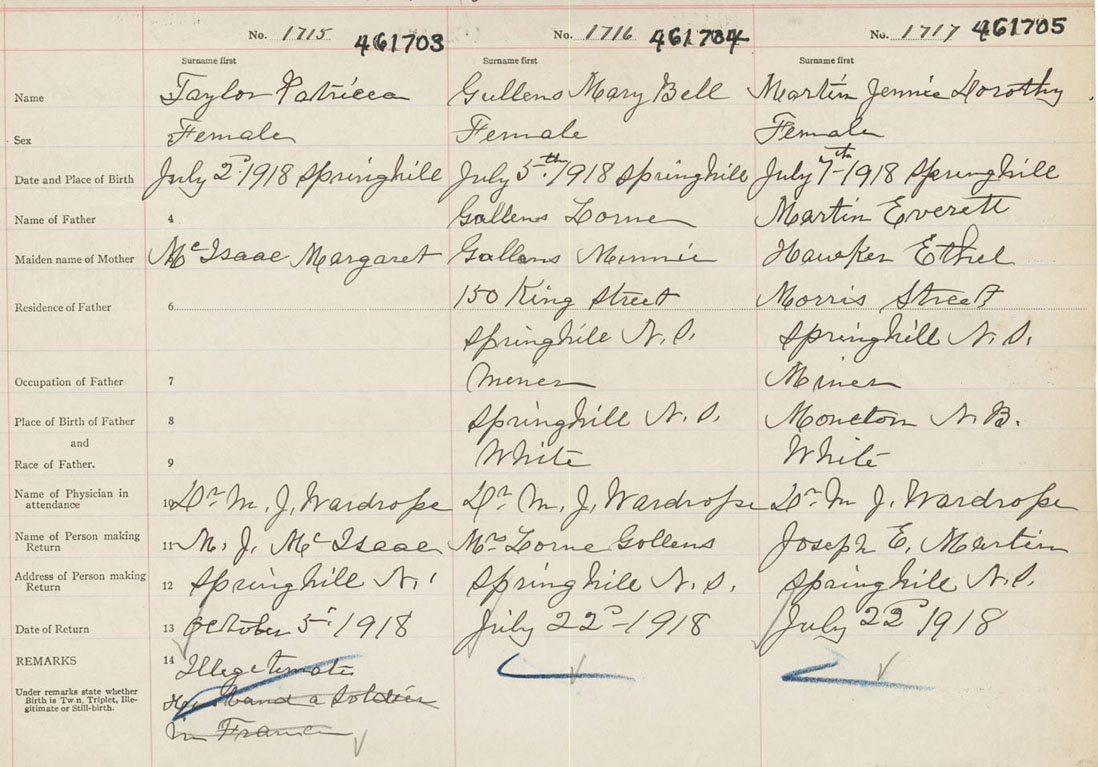 No. 1715 461703 No. 1716 461704 No. 1717 461705
Surname first Surname first Surname first
Name Taylor Patricca Gullens Mary Bell Martin Jennie Dorothy
Sex Female Female Female
Date and Place of Birth July 2d 1918 Springhill July 5th 1918 Springhill July 7th 1918 Springhill
Name of Father 4 Gollens Lorne Martin Everett
Maiden name of Mother McIsaac Margaret Gollens Minnie Hawker Ethel
Residence of Father 6 150 King Street Morris Street
Springhill N.S. Springhill N.S.
Occupation of Father 7 Miner Miner
Place of Birth of Father 8 Springhill N.S. Moncton N.B.
and
Race of Father. 9 White White
Name of Physician in
attendance 10 Dr M. J. Wardrope Dr M. J. Wardrope Dr M J. Wardrope
Name of Person making
Return 11 M. J. McIsaac Mr Lorne Gollens Joseph E. Martin
Address of Person making
Return 12 Springhill N. Springhill N.S. Springhill N.S.
Date of Return 13 October 5 1918 July 22d 1918 July 22d 1918
REMARKS 14 Illegetimate
Under remarks state whether
Birth is Twin, Triplet, Ille-
gitimate or Still-birth.
Husband a Soldier
in France